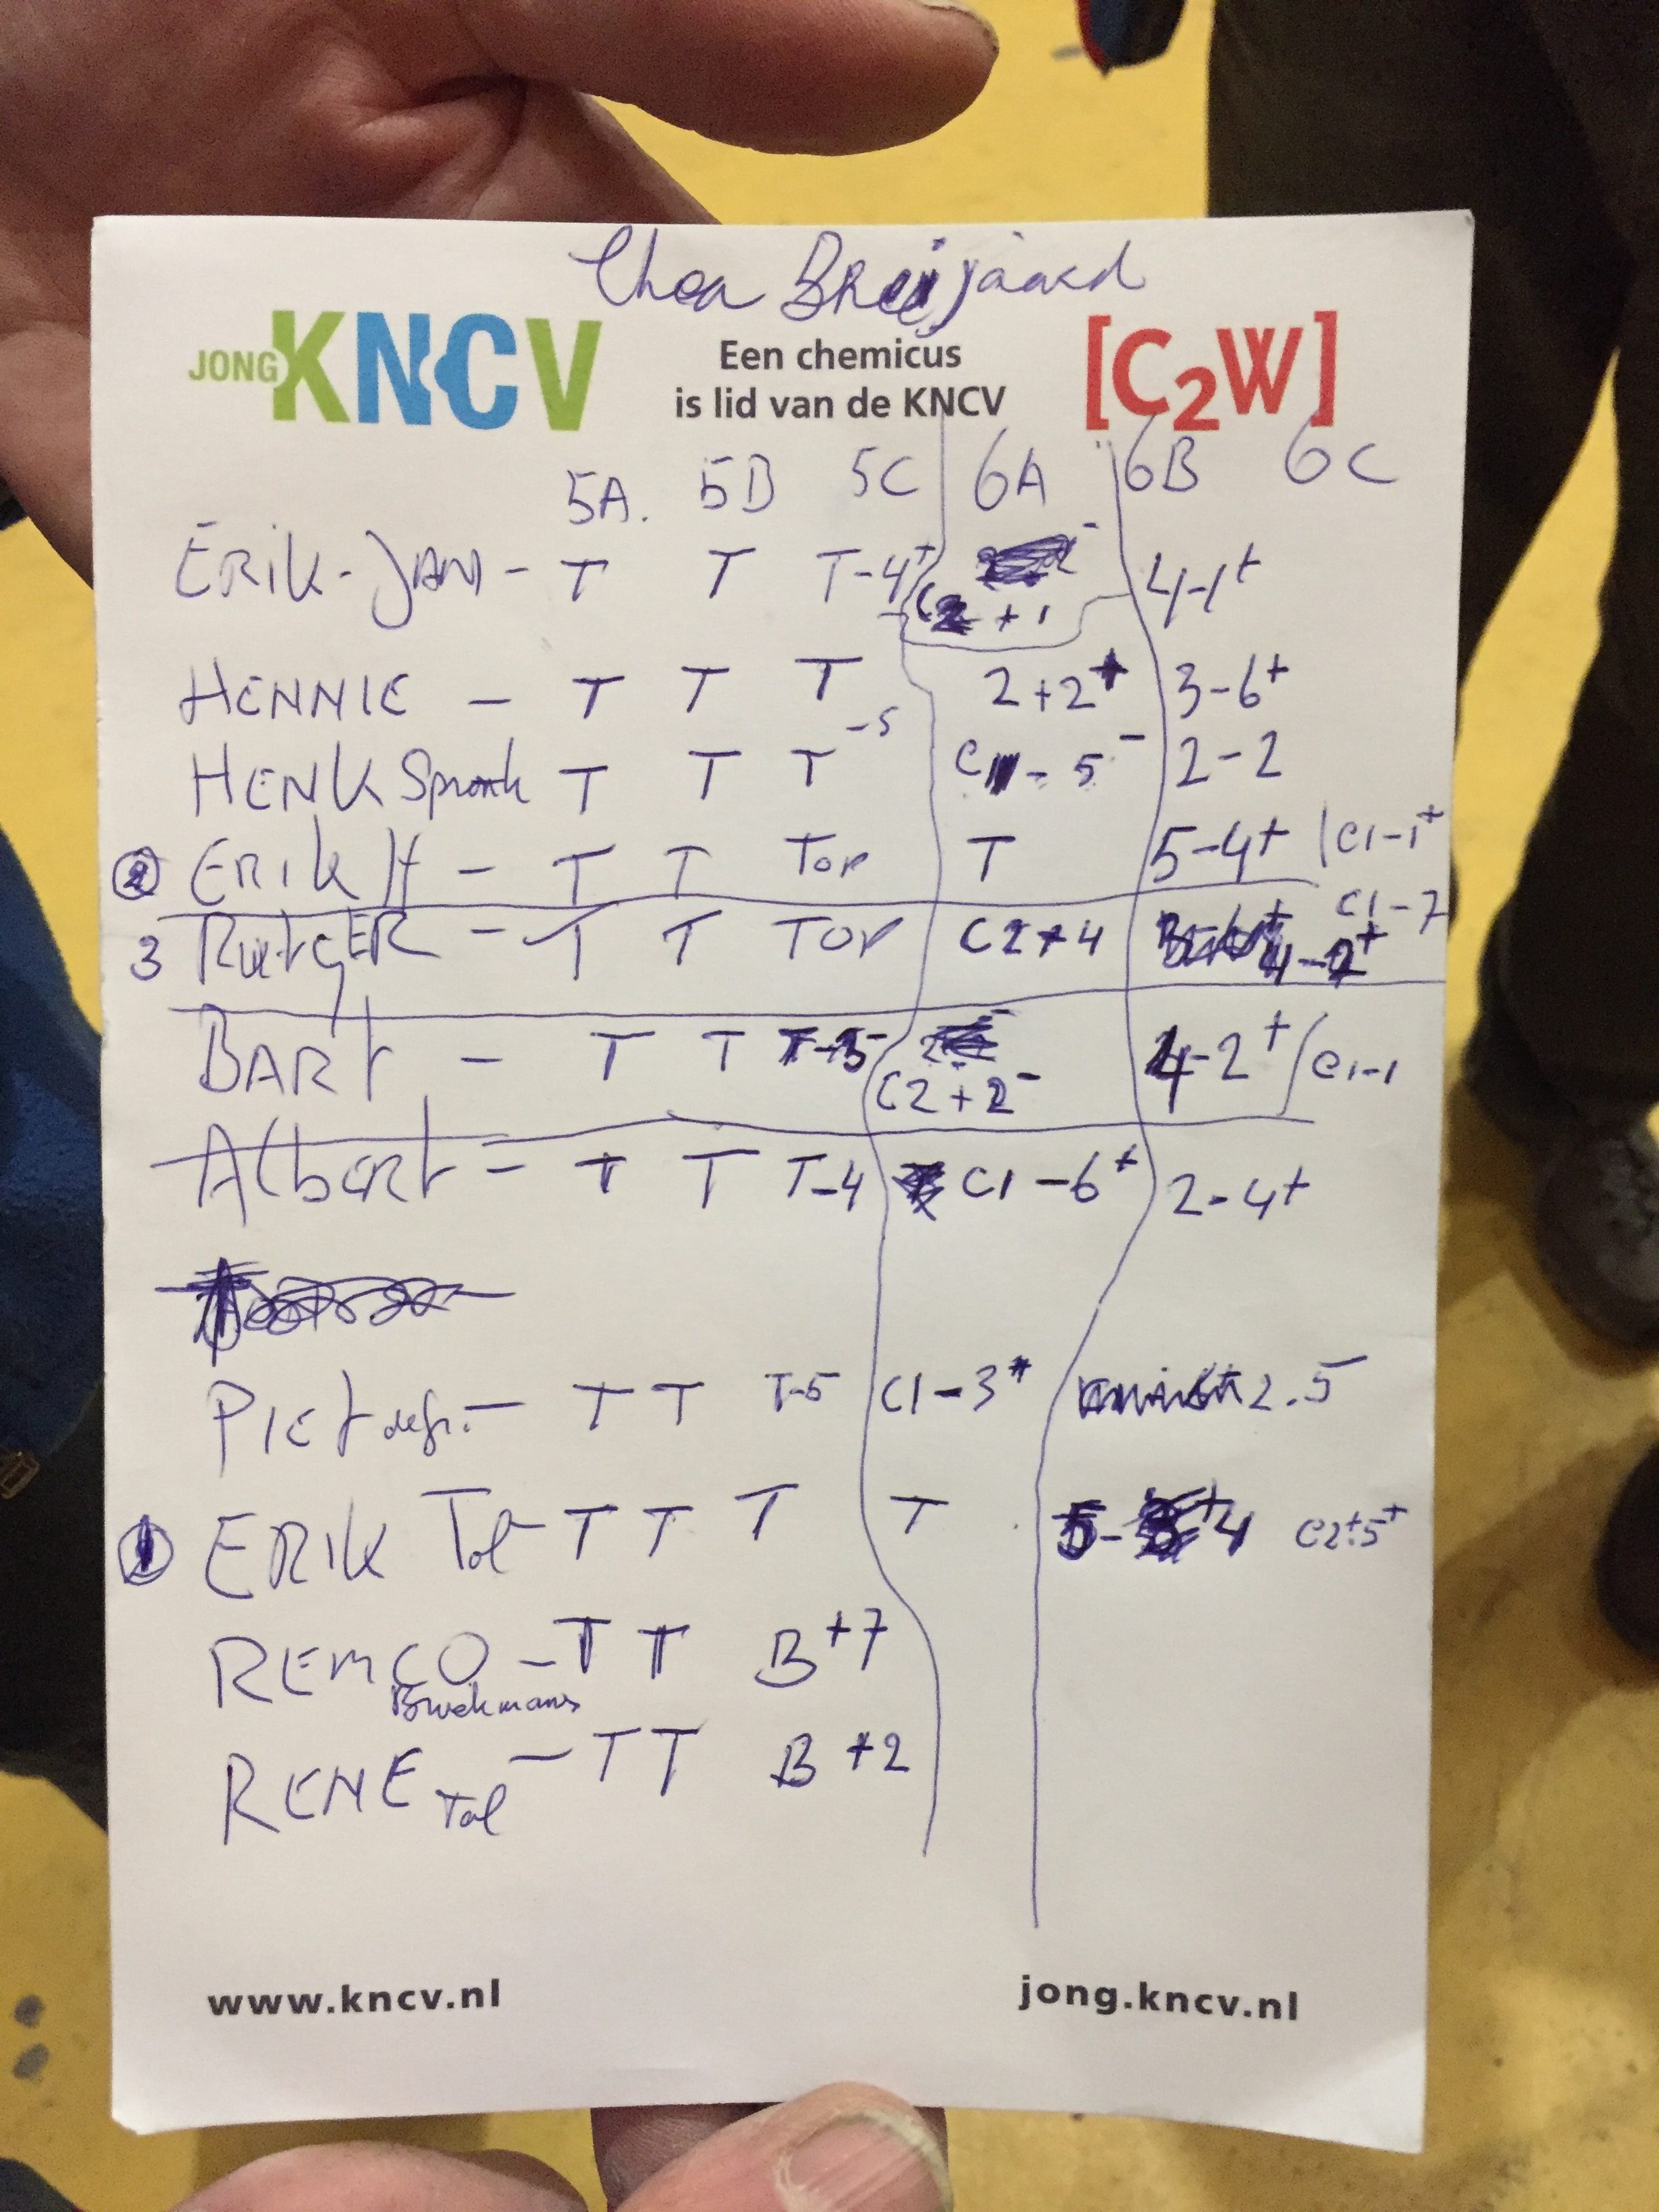 Thea
JONG KNCV
Een chemicus
is lid van de KNCV
[C2W]
5A. 5B 5C 6A 6B 6C
ERIK-JAN - T T T-4+ C2+1 4-1+
HENNIE - T T T 2+2+ 3-6+
HENK Spronk T T T-5 C1-5- 2-2
2 ERIK H - T T TOP T 5-4+ C1-1+
3 RutgER - T T TOP C2+4 4-2+ C1-7
BARt - T T C2+2- 4-2+ / C1-1
AlbERt - T T T-4 C1-6+ 2-4+
PIEt - T T T-5 C1-3+ 2.5-
1 ERIK Tol - T T T T 5-4 C2+5+
REMCO - T T B+7
Broekmans
RENE Tol - T T B+2
www.kncv.nl
jong.kncv.nl